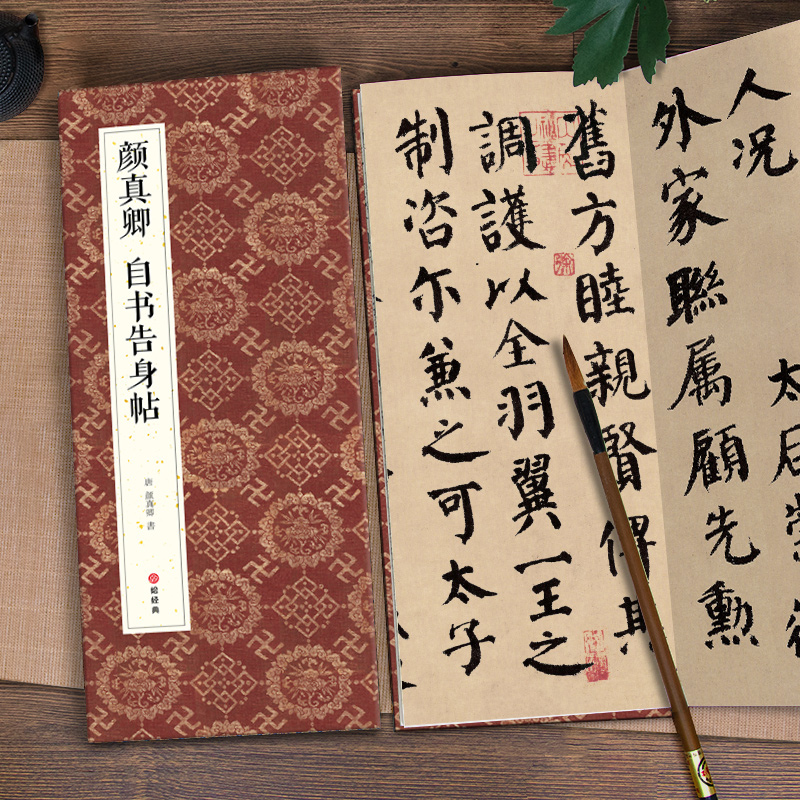 颜真卿 自书告身帖
唐 顔真卿 書
经典
人况 太后崇
外家聯属顧先勲
舊方睦親賢俾其
調護以全羽翼一王之
制咨尓兼之可太子